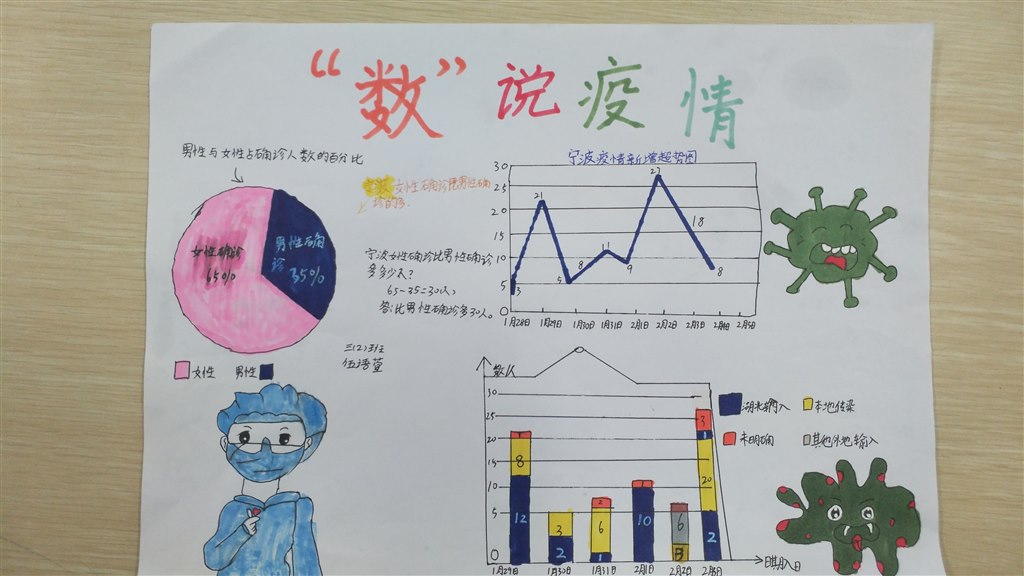 “数”说疫情
男性与女性占确诊人数的百分比
女性确诊
65%
男性确
诊
35%
女性
男性
宁波女性确诊比男性确
诊的多.
宁波女性确诊比男性确诊
多多少人?
65-35=30人,
答:比男性确诊多30人。
三(2)班
伍语萱
宁波疫情新增趋势图
30
25
20
15
10
5
0
3
21
5
8
11
9
27
18
8
1月28日
1月29日
1月30日
1月31日
2月1日
2月2日
2月3日
2月4日
2月5日
数/人
30
25
20
15
10
5
0
1
8
12
3
2
2
6
1
1
10
6
3
3
1
20
2
1月29日
1月30日
1月31日
2月1日
2月2日
2月3日
日期/日
湖北输入
本地传染
未明确
其他外地输入